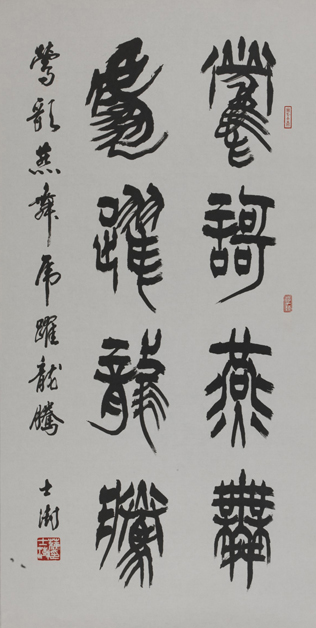 鶯謌燕舞
虎躍龍騰
鶯歌燕舞虎躍龍騰
士澍